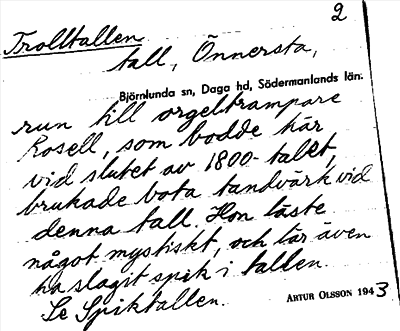 2
Trolltallen
tall, Önnersta,
Björnlunda sn, Daga hd, Södermanlands län.
run till orgeltrampare
Rosell, som bodde här
vid slutet av 1800-talet,
brukade bota tandvärk vid
denna tall. Hon läste
något mystiskt, och lär även
ha slagit spik i tallen.
Se Spiktallen.
ARTUR OLSSON 1943